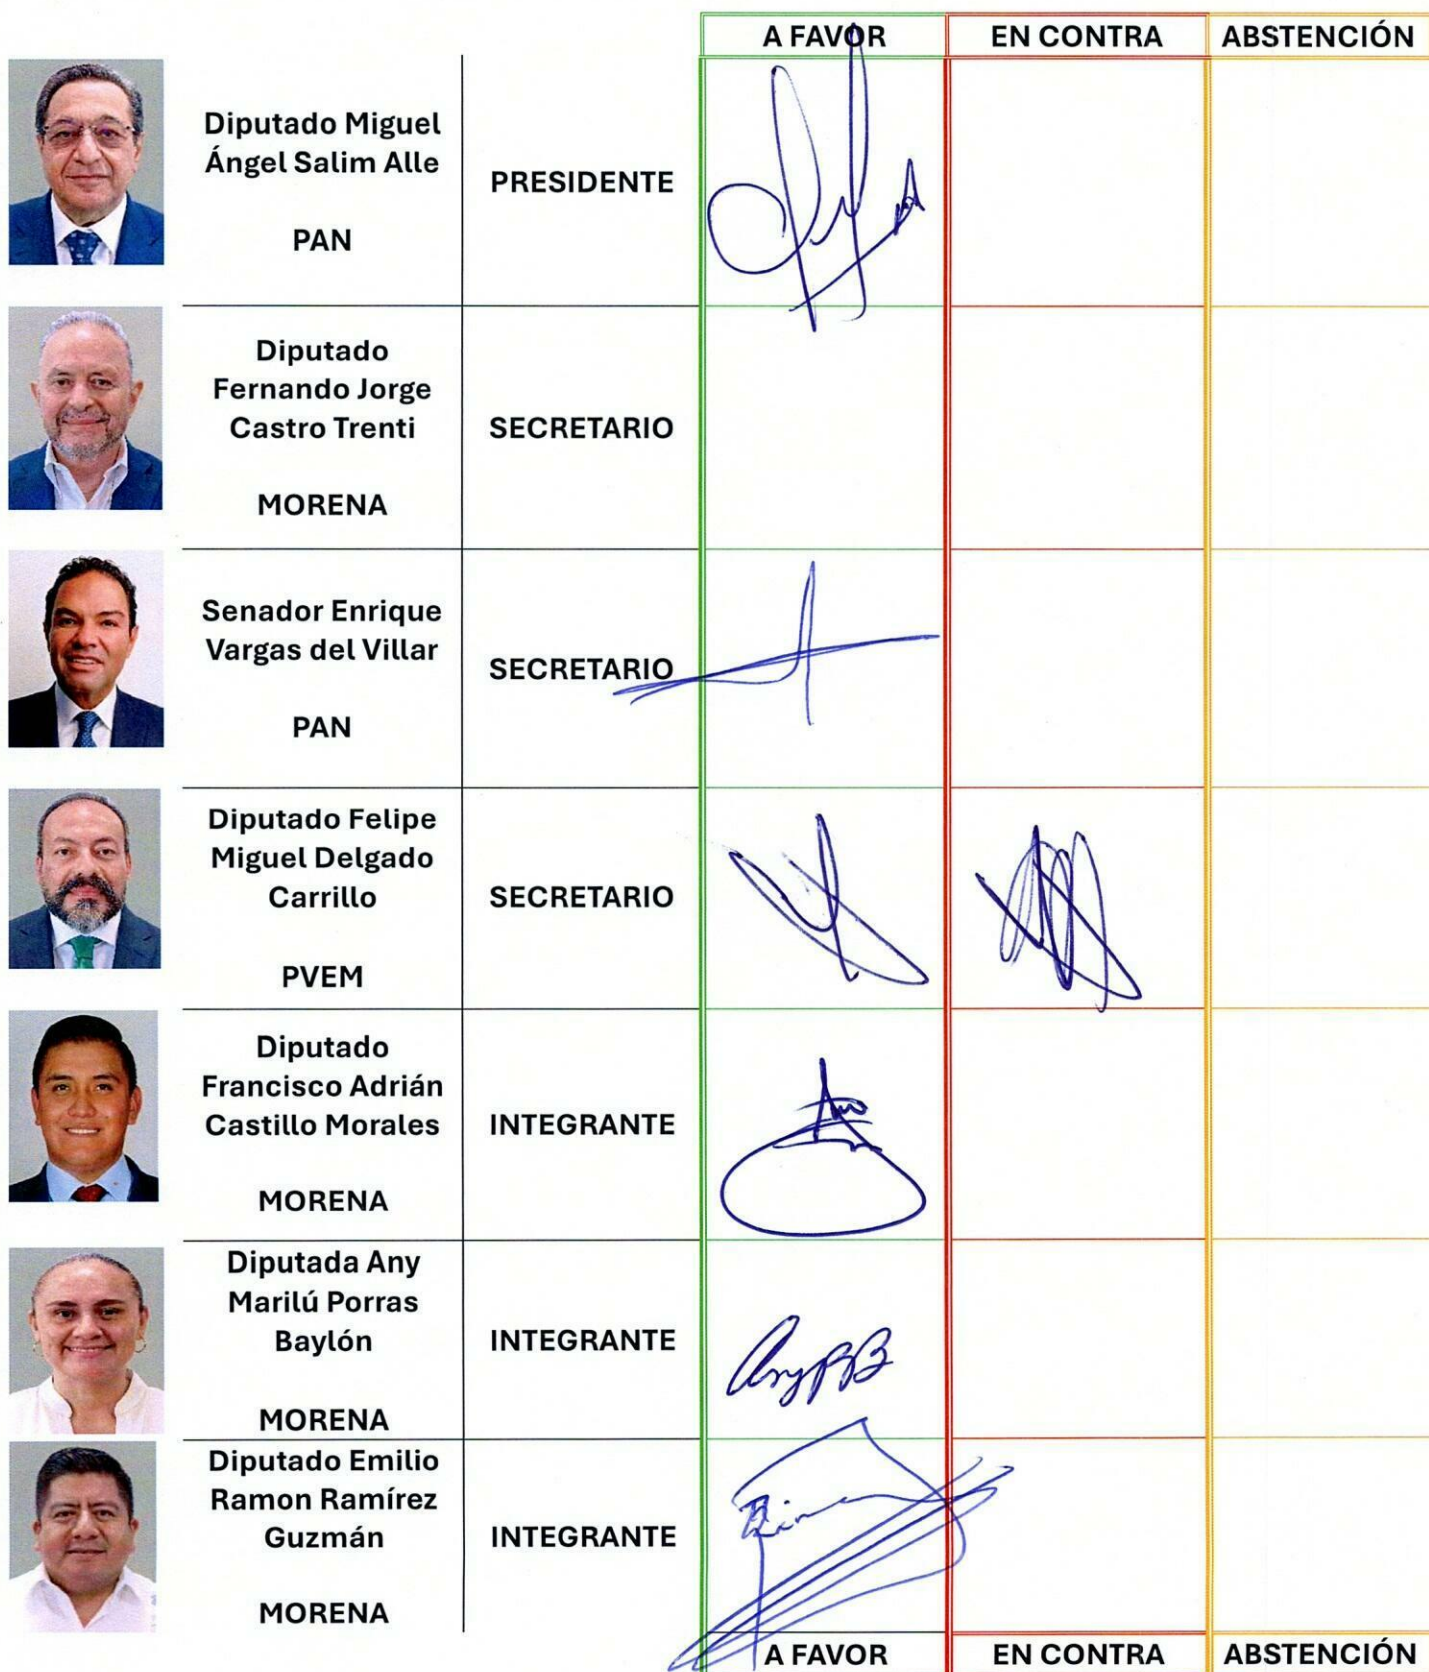 A FAVOR EN CONTRA ABSTENCIÓN
Diputado Miguel
Ángel Salim Alle
PRESIDENTE
PAN
Diputado
Fernando Jorge
Castro Trenti
SECRETARIO
MORENA
Senador Enrique
Vargas del Villar
SECRETARIO
PAN
Diputado Felipe
Miguel Delgado
Carrillo
SECRETARIO
PVEM
Diputado
Francisco Adrián
Castillo Morales
INTEGRANTE
MORENA
Diputada Any
Marilú Porras
Baylón
INTEGRANTE
MORENA
Diputado Emilio
Ramon Ramírez
Guzmán
INTEGRANTE
MORENA
A FAVOR EN CONTRA ABSTENCIÓN